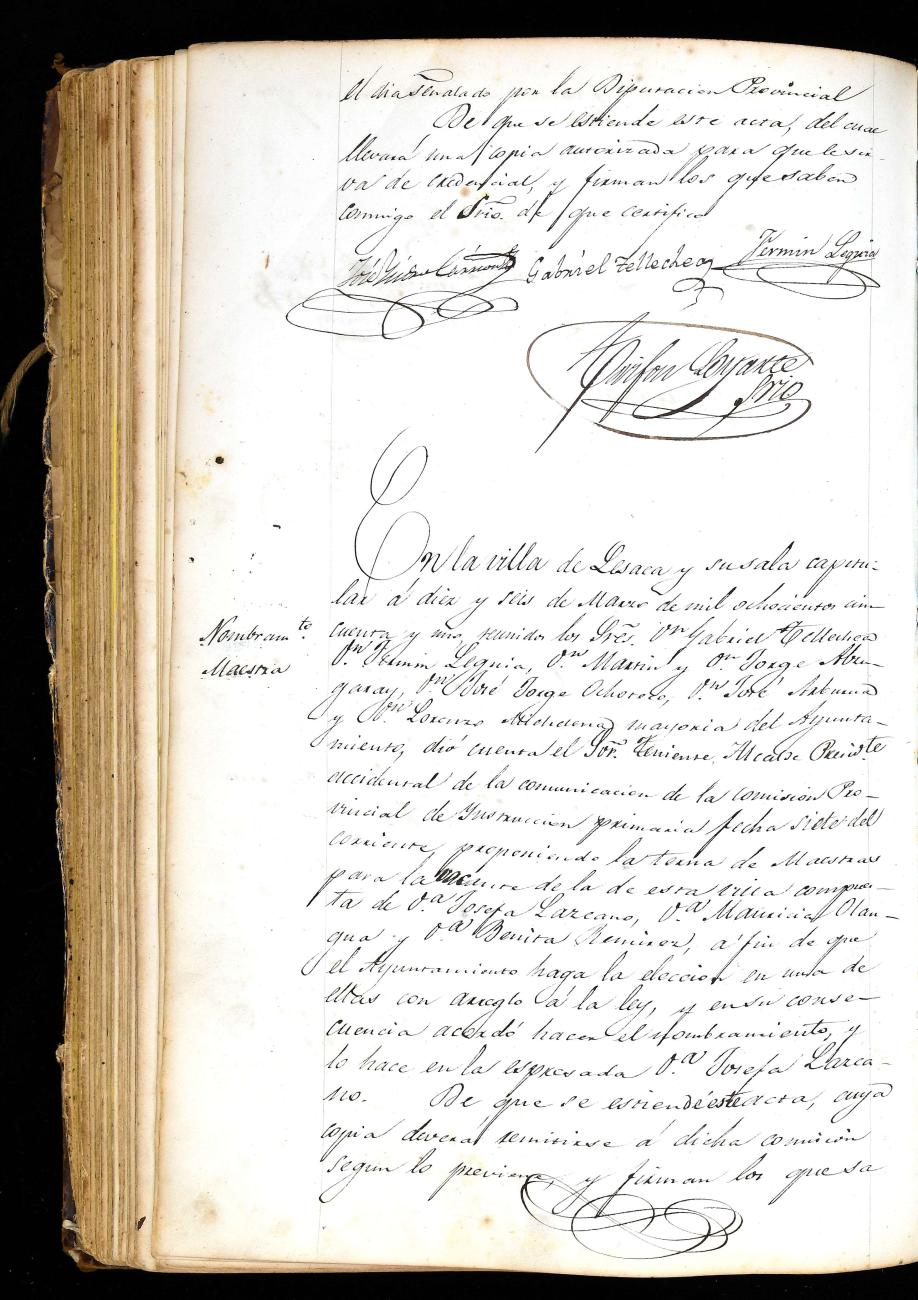 el dia señalado por la Diputacion Provincial
De que se estiende este acta, del cual
llevará una copia autorizada para que le sir-
va de credencial, y firman los que saben
conmigo el Srio. de que certifico
Gabriel Tellechea
Fermin Leguia
Loyarte
Srio
En la villa de Lesaca y su sala capitu-
lar á diez y seis de Marzo de mil ochocientos cin-
Nombramto.
Maestra
cuenta y uno, reunidos los Sres. Dn Gabriel Tellechea
Dn Fermin Leguia, Dn Martin y Dn Jorge Abu-
garay, Dn José Jorge Ochoteco, Dn José
y Dn Lorenzo mayoria del Ayunta-
miento, dió cuenta el Sor. Teniente Alcalde Presidte
accidental de la comunicacion de la comision Pro-
vincial de Ynstruccion primaria fecha siete del
corriente, proponiendo la terna de Maestras
para la vacante de la de esta villa compues-
ta de Da Josefa Lazcano, Da Mauricia Olan-
gua y Da Benita Remirez, á fin de que
el Ayuntamiento haga la eleccion en una de
ellas con arreglo á la ley, y en su conse-
cuencia acordó hacer el nombramiento, y
lo hace en la espresada Da Josefa Lazca-
no. De que se estiende este acta, cuya
copia deverá remitirse á dicha comision
segun lo previene, y firman los que sa